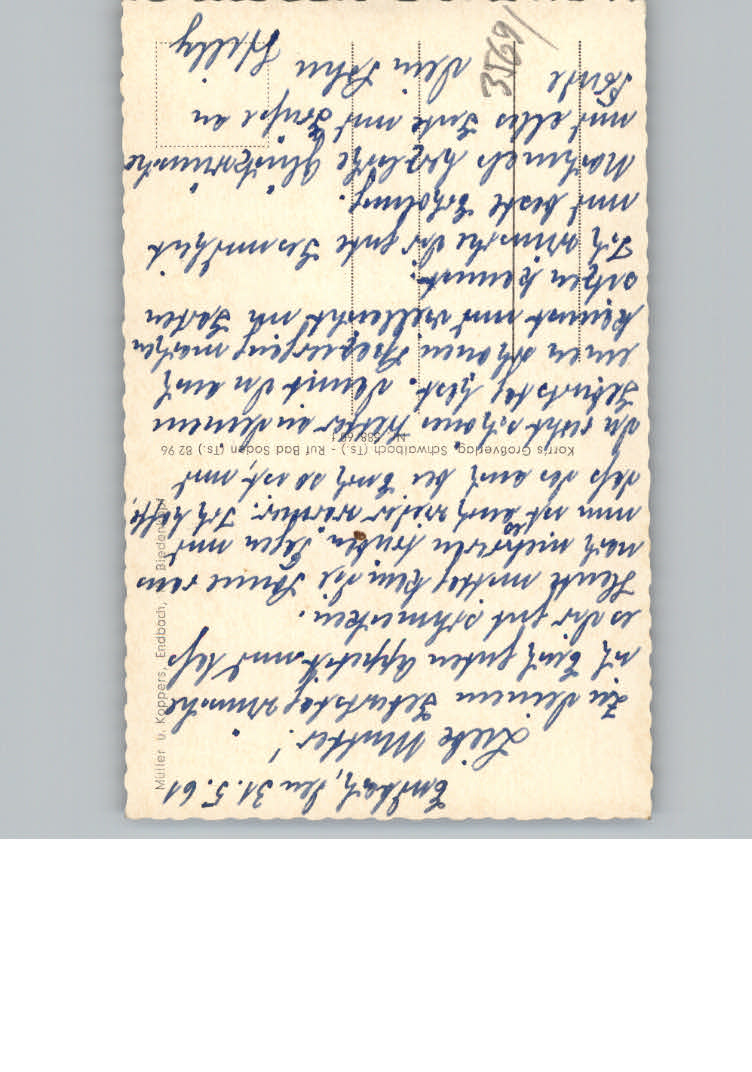 Endbach, den 31.5.61
Liebe Mutter!
Zu deinem Geburtstag wünsche
ich Euch guten Appetit und laß
es dir gut schmecken.
Heute mittag kam die Sonne raus
nach mehreren trüben Tagen und
nun ist auch wieder warm. Ich hoffe,
daß das auch bei Euch so ist, und
du recht schönes Wetter an deinem
Geburtstag hast. damit du auch
einen schönen Spaziergang machen
kannst und vielleicht im Garten
sitzen kannst.
Ich wünsche dir gute Gesundheit
und beste Erholung.
Nochmals herzliche Glückwünsche
und alles Gute und Grüße an
dein Sohn Willy
35691
Müller u. Koppers, Endbach, Biedenkopf
Korris Großverlag, Schwalbach (Ts.) - Ruf Bad Soden (Ts.) 82 96
Nr.